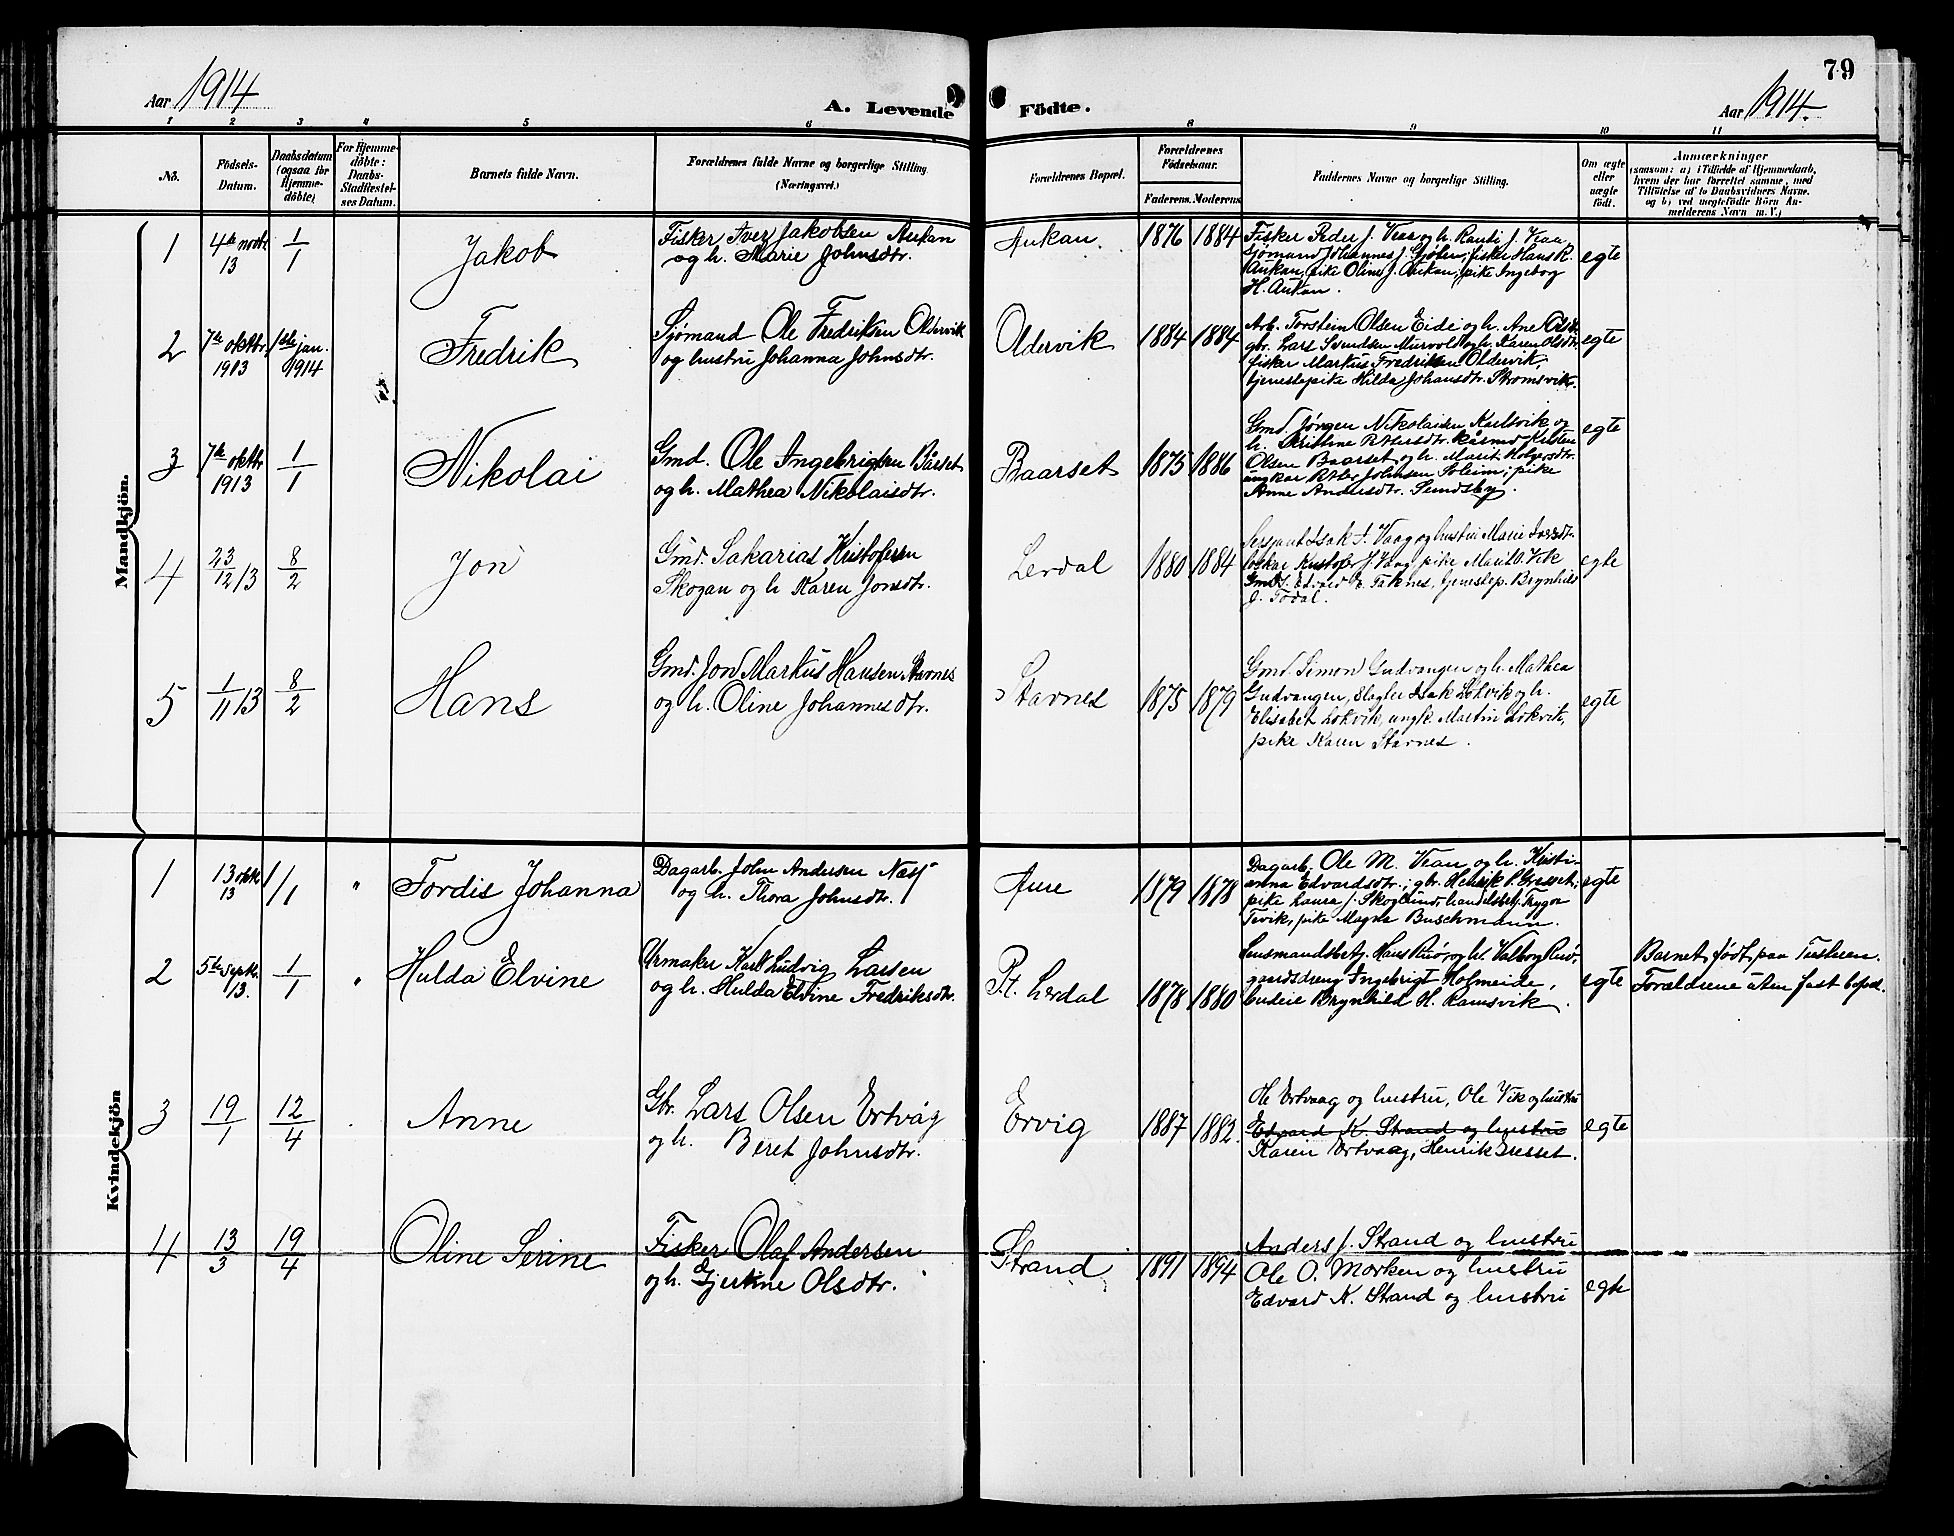 79
Aar 1914
A. Levende Födte.
Aar 1914.
1 2 3 4 5 6 8 9 10 11
No.
Födsels-
Datum.
Daabsdatum
(ogsaa for
Hjemme-
döbte)
For Hjemme-
döbte:
Daabs-
Stadfæstel-
ses Datum.
Barnets fulde Navn.
Forældrenes fulde Navne og borgerlige Stilling
(Næringsvei.)
Forældrenes Bopæl.
Forældrenes
Födselsaar.
Faderens. Moderens
Faddernes Navne og borgerlige Stilling.
Om ægte
eller
uægte
födt.
Anmærkninger
(saasom: a) i Tilfælde af Hjemmedaab,
hvem der har forrettet samme, med
Tilföielse af to Daabsvidners Navne.
og b) ved uægtefödte Börn An-
melderens Navn m. V.)
Mandkjön.
1
4de novbr
13
1/1
Jakob
Fisker Iver Jakobsen Aukan
og h. Marie Johnsdtr.
Aukan.
1876 1884
Fisker Peder J. Veaa og h. Randi J. Veaa
Sjømand Johannes J. Sjølsen, fisker Hans R.
Aukan, pike Oline J. Aukan, pike Ingebog
H. Aukan.
egte
2
7de oktbr.
1913
1ste jan.
1914
Fredrik
Sjömand Ole Fredriksen Oldervik
og hustru Johanna Johnsdtr.
Oldervik
1884 1884
Arb. Torstein Olsen Eide og h. Ane Olsdtr.
gbr. Lars Svendsen Murvold og h. Karen Olsdtr
fisker Markus Fredriksen Oldervik,
tjenestepike Hilda Johansdtr. Strømsvik.
egte
3
7de oktbr
1913
1/1
Nikolai
Gmd. Ole Ingebrigtsen Bårset
og h. Mathea Nikolaisdtr.
Baarset
1875 1886
Gmd. Jørgen Nikolaisen Karlsvik og
h. Kristine Petersdtr. Råsmd Kristen
Olsen Baarset og h. Marit Holgersdtr.
ungkar Peter Johnsen Soleim, pike
Anne Andersdtr. Semdsby.
egte
4
23/12 13
8/2
Jon
Gmd. Sakarias Kristofersen
Skogan og h Karen Jonsdtr.
Lerdal
1880 1884
Sersjant Isak I. Vaag og hustru Marie Iversdtr.
Ungkar Kristofer J. Vaag, pike Marit O. Vik
Gmd. S. Edvard E. Taknes, tjenestep. Brynhild
J. Todal.
egte
5
1/11 13
8/2
Hans
Gmd. Jon Markus Hansen Stavnes
og h. Oline Johannesdtr.
Stavnes
1875 1879
Gmd. Simon Gudvangen og h. Mathea
Gudvangen, slagter Isak Løkvik og h.
Elisabet Løkvik, ungk. Martin Løkvik,
pike Karen Stavnes.
egte
Kvindekjön
1
13 okt
13
1/1
"
Tordis Johanna
Dagarb. John Andersen Næss
og h. Thora Johnsdtr.
Aure
1879 1878
Dagarb. Ole M. Vean og h. Kristi-
anna Edvardsdtr.; gbr. Henrik P. Gresset,
pike Laura J. Skoglund, handelsbetj. Trygve
Tevik, pike Magda Buschmann.
egte
2
5te septbr.
13.
1/1
"
Hulda Elvine
Urmaker Karl Ludvig Larsen
og h. Hulda Elvine Fredriksdtr.
Pt. Lerdal
1878 1880
Lensmandsbetj. Hans Ruø og h. Valborg Ruø,
gaardsdreng Ingebrigt Holmeide,
budeie Brynhild H. Ramsvik.
egte
Barnet født paa Tusteren.
Forældrene uten fast bopæl.
3
19/1
12/4
Anne
Gbr. Lars Olsen Ertvåg
og h. Beret Johnsdtr.
Ervig
1887 1882.
Ole Ertvaag og hustru, Ole Vik og hustru
Edvard K. Strand og hustru
Karen Ertvaag, Henrik Gresset.
egte
4
13/3
19/4
Oline Serine
Fisker Olaf Andersen
og h. Gjertine Olsdtr.
Strand
1891 1894
Anders J. Strand og hustru
Ole O. Morken og hustru
Edvard K. Strand og hustru
egte